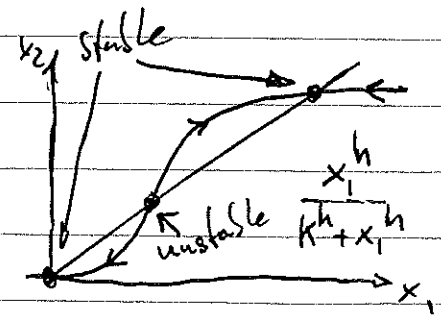 x₂ stable
unstable
x₁ʰ
Kʰ + x₁ʰ
x₁